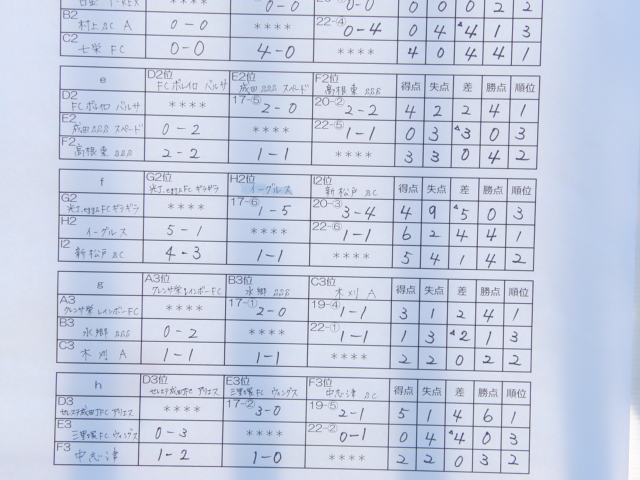 0-0 0-0 0 0 0 2 2
B2 村上SC A 0-0 **** 22-④ 0-4 0 4 ▲4 1 3
C2 七栄FC 0-0 4-0 **** 4 0 4 4 1
e D2位 FCボレイロ バルサ E2位 成田SSS スペード F2位 高根東SSS 得点 失点 差 勝点 順位
D2 FCボレイロ バルサ **** 17-⑤ 2-0 20-② 2-2 4 2 2 4 1
E2 成田SSS スペード 0-2 **** 22-⑤ 1-1 0 3 ▲3 0 3
F2 高根東SSS 2-2 1-1 **** 3 3 0 4 2
f G2位 H2位 イーグルス I2位 新松戸SC 得点 失点 差 勝点 順位
G2 **** 17-⑥ 1-5 20-③ 3-4 4 9 ▲5 0 3
H2 イーグルス 5-1 **** 22-⑥ 1-1 6 2 4 4 1
I2 新松戸SC 4-3 1-1 **** 5 4 1 4 2
g A3位 クレンサ栄レインボーFC B3位 永郷SSS C3位 木刈 A 得点 失点 差 勝点 順位
A3 クレンサ栄レインボーFC **** 17-① 2-0 19-④ 1-1 3 1 2 4 1
B3 永郷SSS 0-2 **** 22-① 1-1 1 3 ▲2 1 3
C3 木刈 A 1-1 1-1 **** 2 2 0 2 2
h D3位 セレステ成田JFC アリエス E3位 三里塚FC ウィングス F3位 中志津SC 得点 失点 差 勝点 順位
D3 セレステ成田JFC アリエス **** 17-② 3-0 19-⑤ 2-1 5 1 4 6 1
E3 三里塚FC ウィングス 0-3 **** 22-② 0-1 0 4 ▲4 0 3
F3 中志津 1-2 1-0 **** 2 2 0 3 2